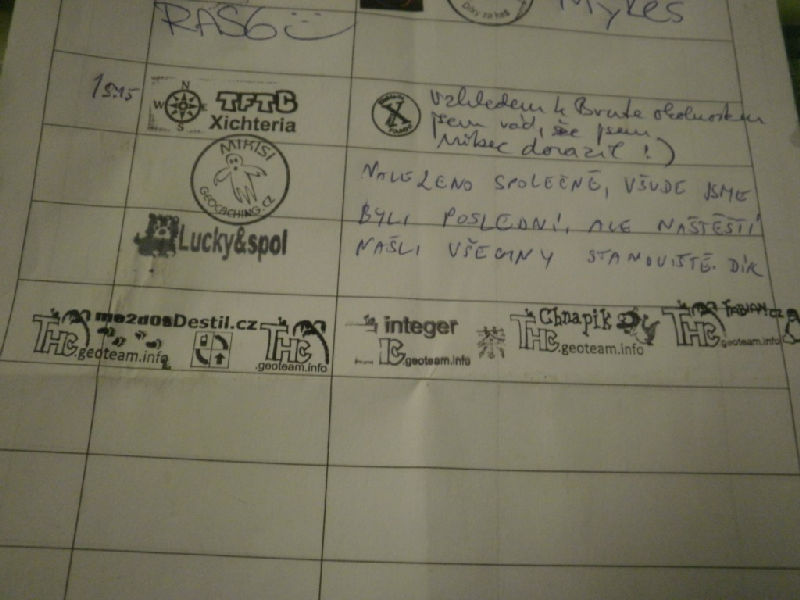 RAS6
Mykes
N
W E
S
TFTC
Xichteria
vzhledem k Brute okolnostem
jsem rád, že jsem
vůbec dorazil !)
MIKISI
GEOCACHING.CZ
NALEZENO SPOLEČNĚ, VŠUDE JSME
BYLI POSLEDNÍ, ALE NAŠTĚSTÍ
NAŠLI VŠECHNY STANOVIŠTĚ. DÍK
Lucky&spol
me2dosDestil.cz
THC
geoteam.info
THC
.geoteam.info
integer
geoteam.info
Chnapik
THC
.geoteam.info
FABIAN.CZ
THC
geoteam.info